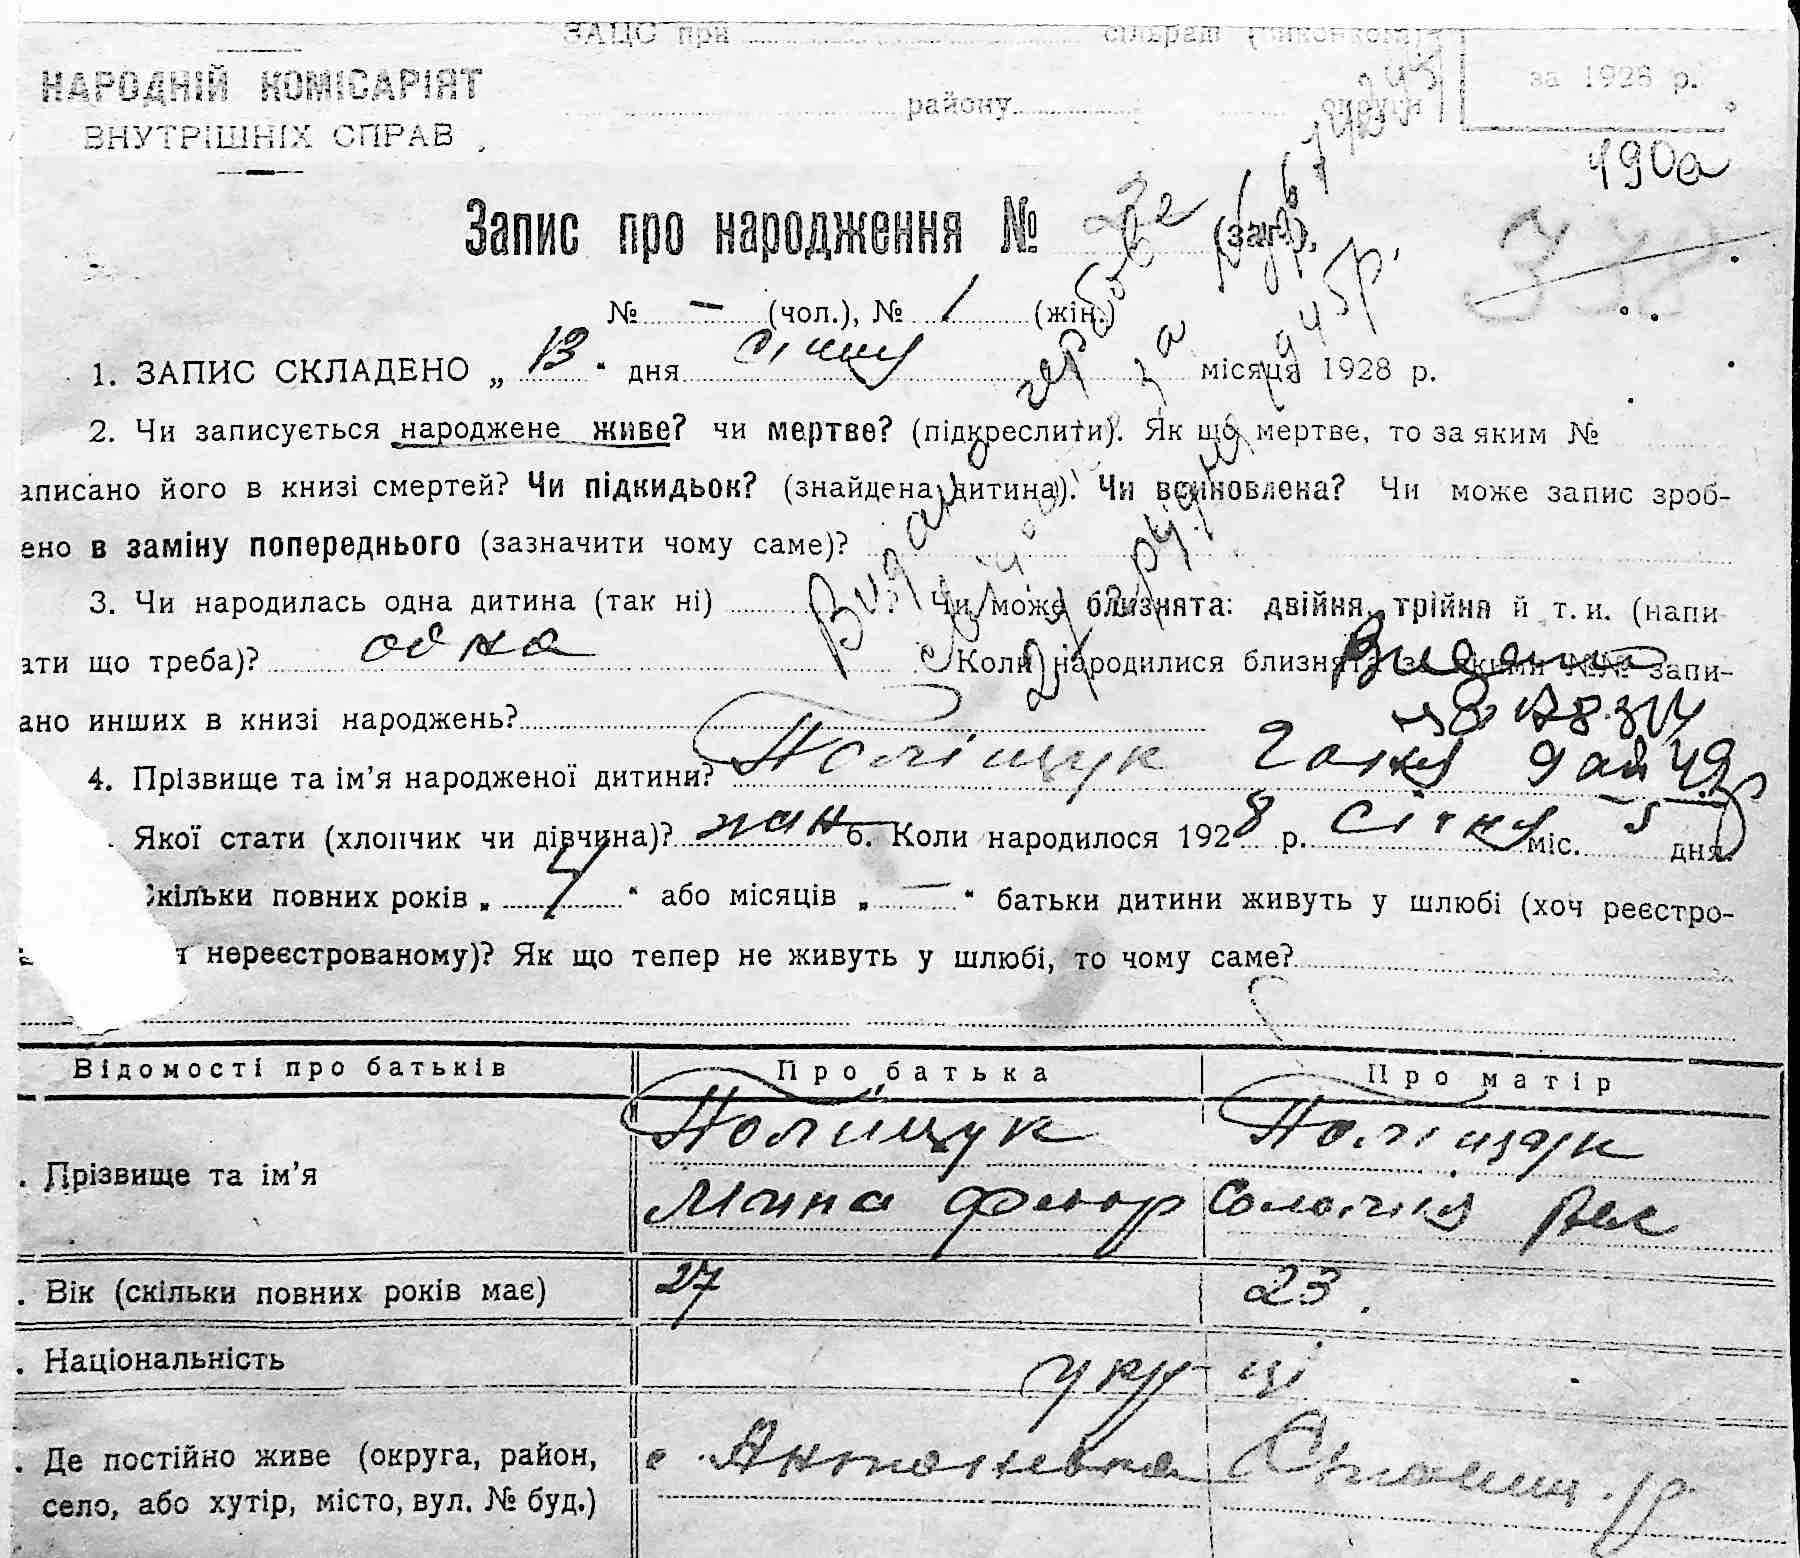 ЗАЦС при сільраді
НАРОДНІЙ КОМІСАРІЯТ
ВНУТРІШНІХ СПРАВ
району округи
за 1928 р.
190а
338
Запис про народження № (заг.).
№ — (чол.), № 1 (жін.)
1. ЗАПИС СКЛАДЕНО „ 13 " дня січня місяця 1928 р.
2. Чи записується народжене живе? чи мертве? (підкреслити). Як що мертве, то за яким №
аписано його в книзі смертей? Чи підкидьок? (знайдена дитина). Чи всиновлена? Чи може запис зроб-
ено в заміну попереднього (зазначити чому саме)?
3. Чи народилась одна дитина (так ні) ? Чи може близнята: двійня, трійня й т. и. (напи
ати що треба)? одна Коли народилися близнята за якими №№ запи-
ано инших в книзі народжень?
4. Прізвище та ім'я народженої дитини? Поліщук Ганя
Якої стати (хлопчик чи дівчина)? жін 6. Коли народилося 1928 р. січня міс. 5 дня.
Скільки повних років „ 4 " або місяців „ — " батьки дитини живуть у шлюбі (хоч реєстро-
нереєстрованому)? Як що тепер не живуть у шлюбі, то чому саме?
Видано
гербове
за
24 грудня 1945р.
Відомості про батьків Про батька Про матір
. Прізвище та ім'я Поліщук Поліщук
Мина Февр Соломія Лек
. Вік (скільки повних років має) 27 23.
. Національність укр-ці
. Де постійно живе (округа, район, с. Антонівка
село, або хутір, місто, вул. № буд.)